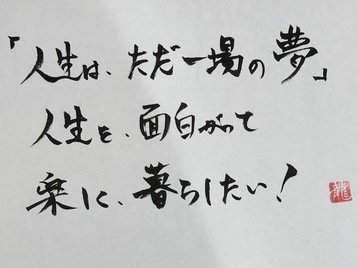 「人生は、ただ一場の夢」
人生を、面白がって
楽に、暮らしたい!